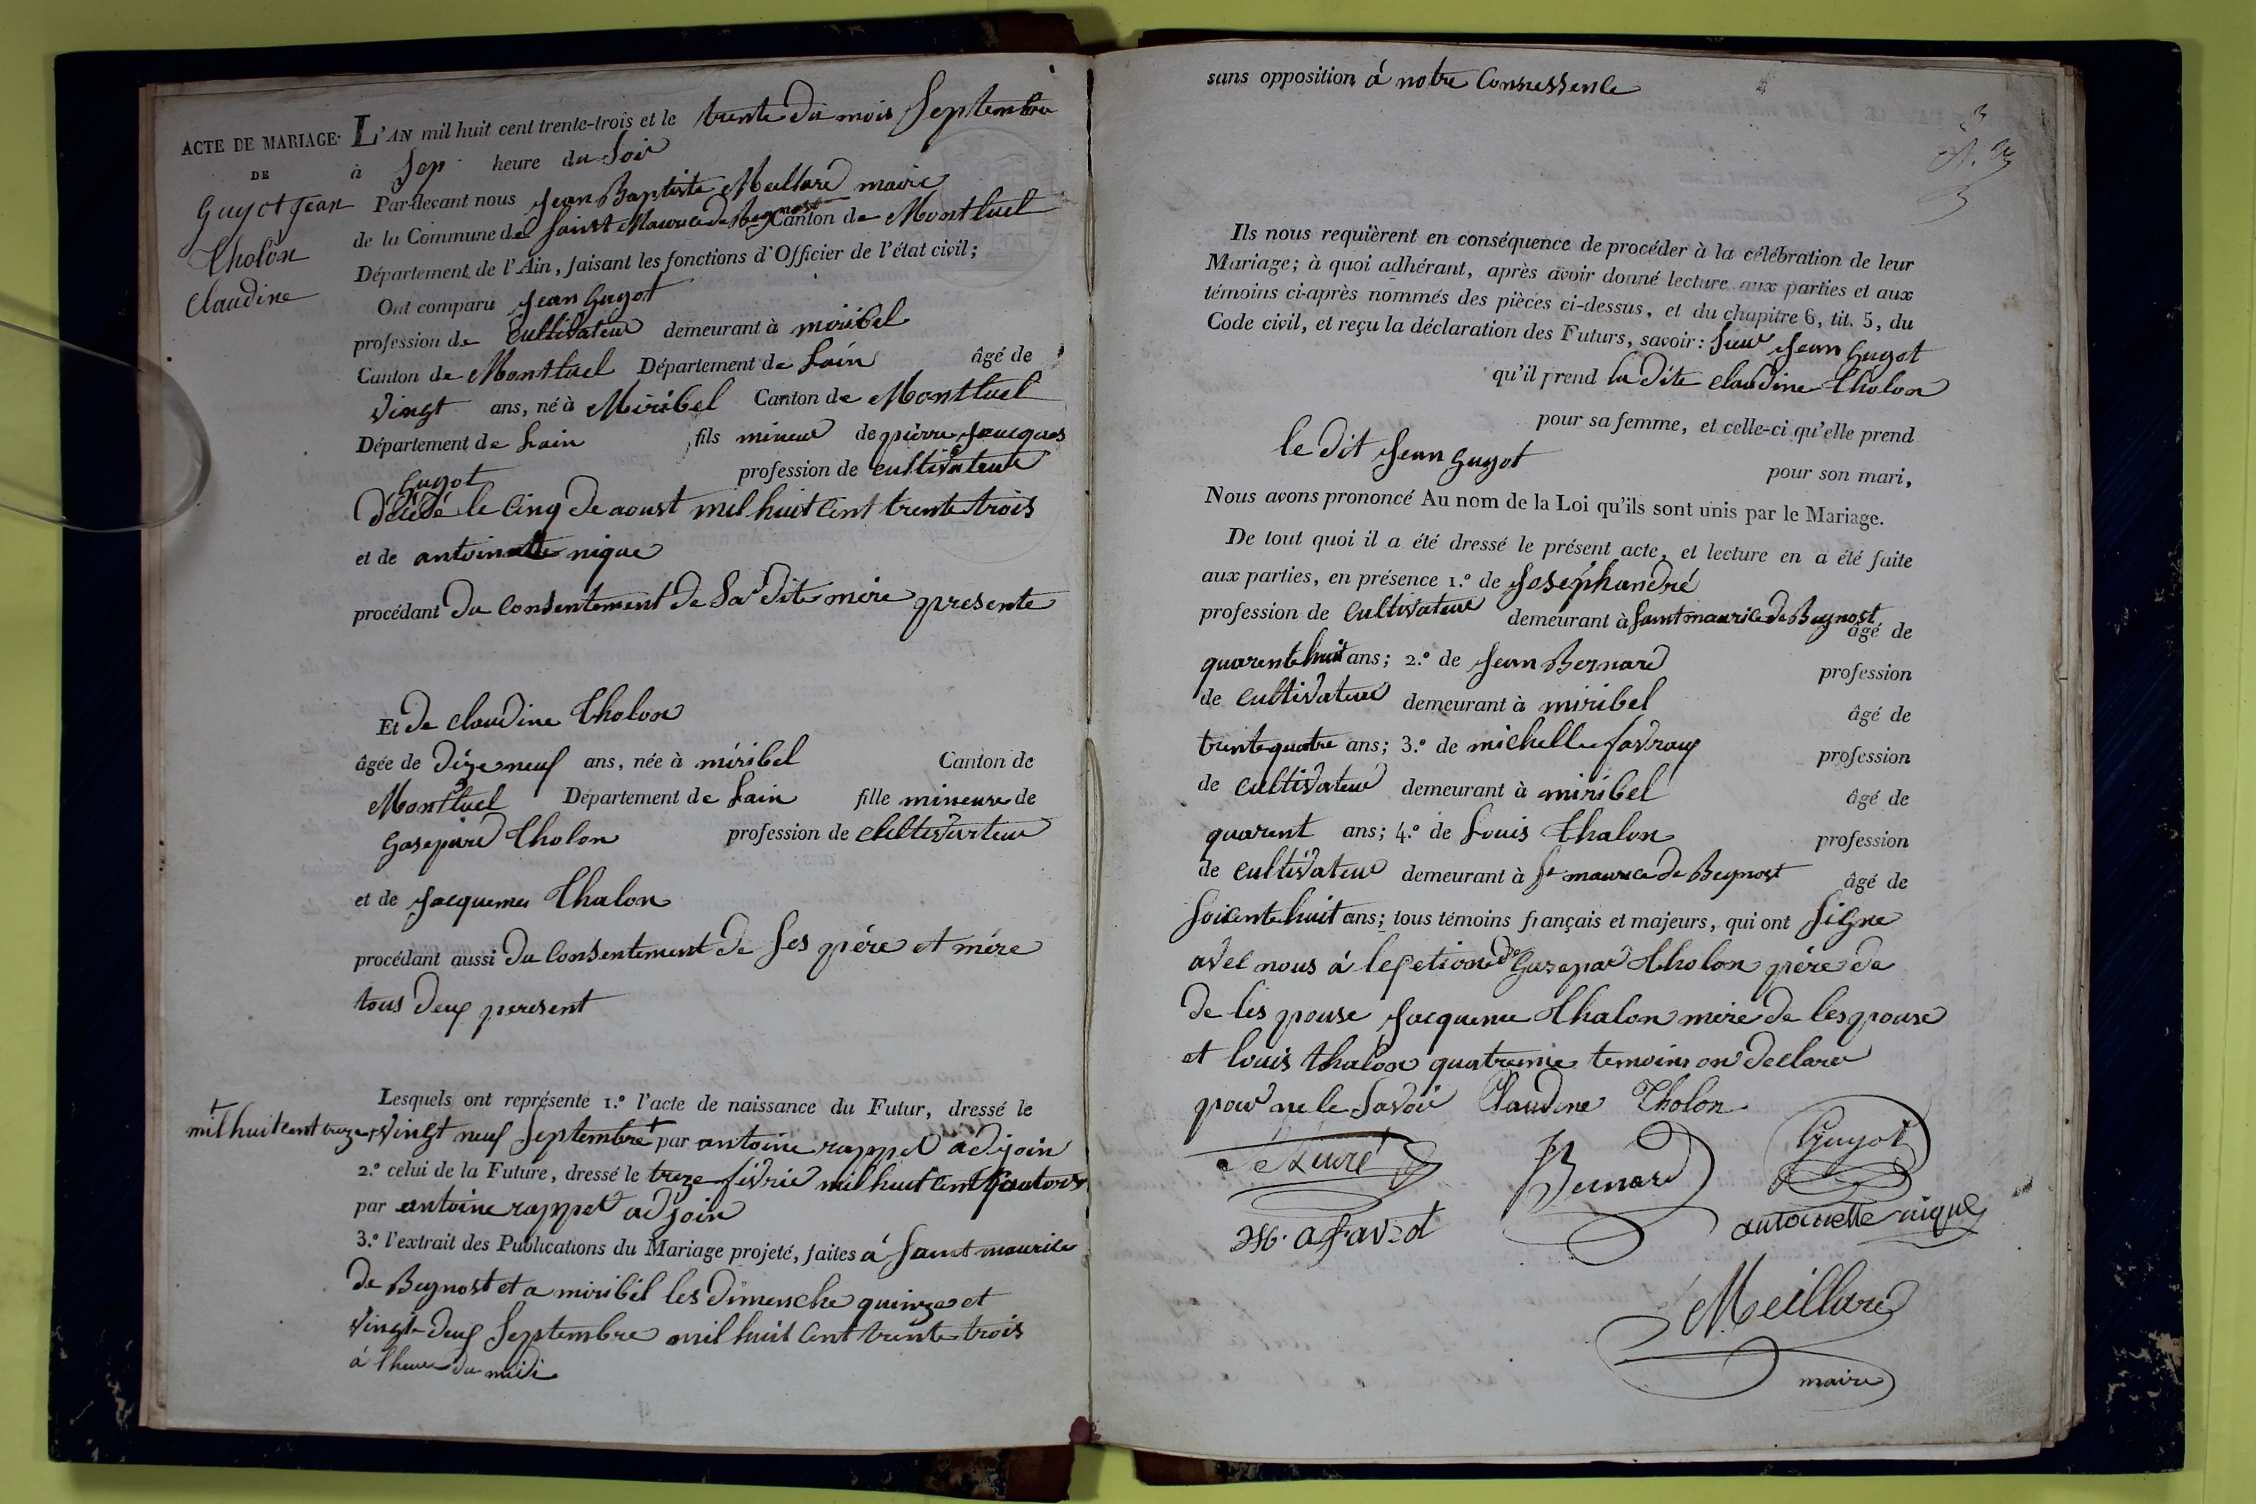 ACTE DE MARIAGE. L'AN mil huit cent trente-trois et le trente du mois Septembre
DE
à Sep heure du Soir
Guyot Jean
Tholon
Claudine
Par-devant nous Jean Baptiste Meillard maire
de la Commune de Saint Maurice de Beynost Canton de Montluel
Département de l'Ain, faisant les fonctions d'Officier de l'état civil;
Ont comparu Jean Guyot
profession de Cultivateur demeurant à miribel
Canton de Montluel Département de Lain âgé de
Vingt ans, né à Miribel Canton de Montluel
Département de Lain fils mineur de pierre Jacques
Guyot profession de cultivateur
décédé le Cinq de aoust mil huit Cent trente trois
et de antoinette nique
procédant du Consentement de Sa dite mère presente
Et de claudine Tholon
âgée de dize neuf ans, née à miribel Canton de
Montluel Département de Lain fille mineure de
Gaspard Tholon profession de Cultivateur
et de Jacqueme Thalon
procédant aussi du Consentement de Ses père et mère
tous deux peresent
Lesquels ont représenté 1.º l'acte de naissance du Futur, dressé le
mil huit cent treize Vingt neuf Septembre par antoine rappet adjoin
2.º celui de la Future, dressé le treze fevrié mil huit Cent
par antoine rappet adjoin
3.º l'extrait des Publications du Mariage projeté, faites à Saint maurice
de Beynost et a miribel les dimenche quinze et
Vingt deux Septembre mil huit Cent trente trois
à lheure du midi
sans opposition à notre
Ils nous requièrent en conséquence de procéder à la célébration de leur
Mariage; à quoi adhérant, après avoir donné lecture aux parties et aux
témoins ci-après nommés des pièces ci-dessus, et du chapitre 6, tit. 5, du
Code civil, et reçu la déclaration des Futurs, savoir: Sieur Jean Guyot
qu'il prend la dite claudine Tholon
pour sa femme, et celle-ci qu'elle prend
le dit Jean Guyot pour son mari,
Nous avons prononcé Au nom de la Loi qu'ils sont unis par le Mariage.
De tout quoi il a été dressé le présent acte, et lecture en a été faite
aux parties, en présence 1.º de Joseph andré
profession de Cultivateur demeurant à Saint maurice de Beynost âgé de
quarente huit ans; 2.º de Jean Bernard profession
de cultivateur demeurant à miribel âgé de
trente quatre ans; 3.º de michelle favrau profession
de cultivateur demeurant à miribel âgé de
quarent ans; 4.º de Louis Thalon profession
de cultivateur demeurant à St maurice de Beynost âgé de
Soixente huit ans; tous témoins français et majeurs, qui ont Signe
avec nous à lecetion de Gasepar Tholon père de
de les pouse Jacqueme Thalon mère de lespouse
et louis thalon quatreme temoins on declare
pour ne le Savoir Claudine Tholon
Guyot
Bernard
antoinette nique
Meillard
maire